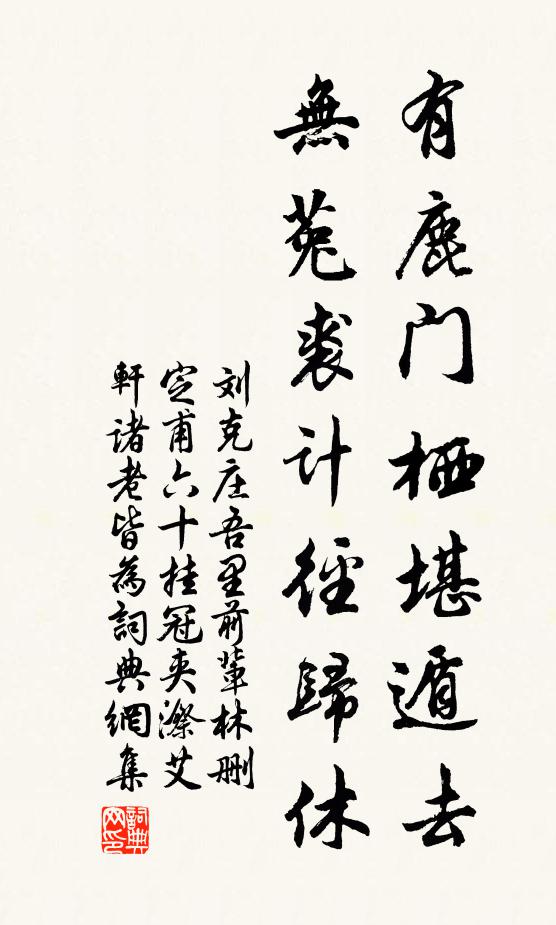 有鹿门栖堪遁去
無菟裘计徑歸休
刘克庄吾里前輩林删
定甫六十挂冠夾漈艾
軒诸老皆為詞典網集
詞典
网印